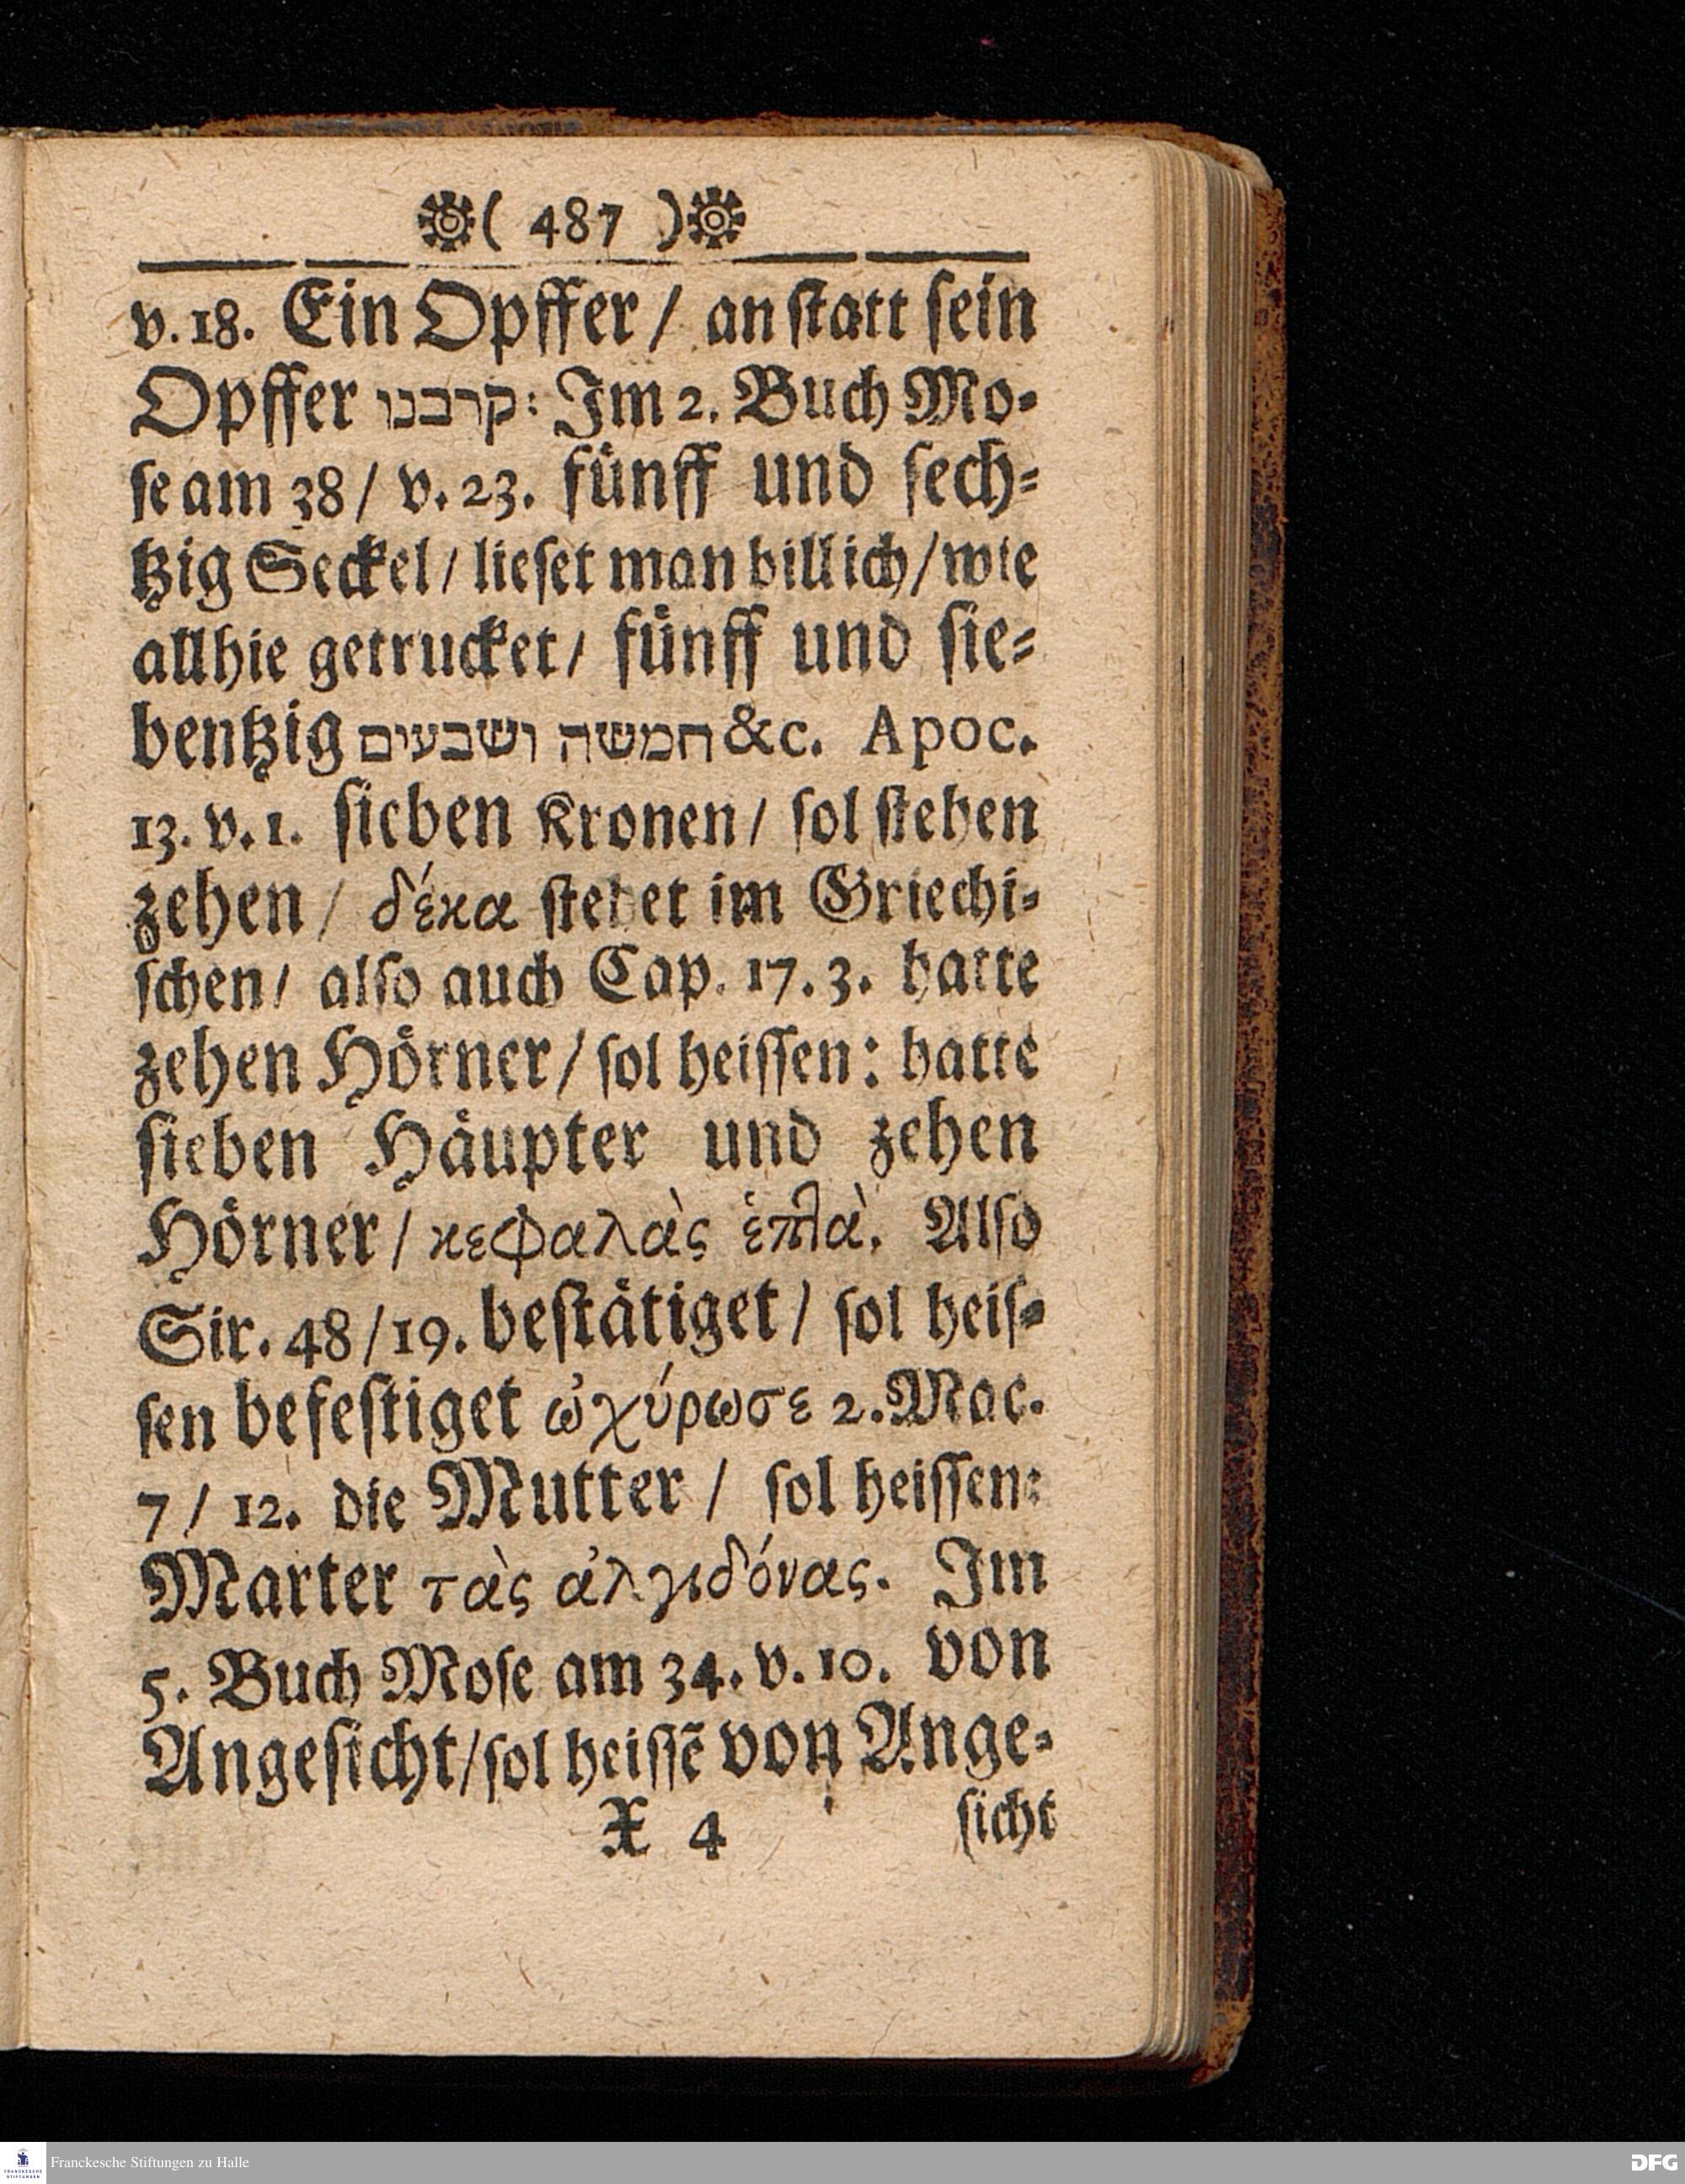 ( 487 )
v. 18. Ein Opffer / an statt sein
Opffer קרבנו: Im 2. Buch Mo-
se am 38 / v. 23. fünff und sech-
tzig Seckel / lieset man billich / wie
allhie getrucket / fünff und sie-
bentzig חמשה ושבעים &c. Apoc.
13. v. 1. sieben Kronen / sol stehen
zehen / δέκα stehet im Griechi-
schen / also auch Cap. 17. 3. hatte
zehen Hörner / sol heissen: hatte
sieben Häupter und zehen
Hörner / κεφαλὰς ἑπτὰ. Also
Sir. 48 / 19. bestätiget / sol heis-
sen befestiget ὠχύρωσε 2. Mac.
7 / 12. die Mutter / sol heissen:
Marter τὰς ἀλγιδόνας. Im
5. Buch Mose am 34. v. 10. von
Angesicht / sol heissē von Ange-
X 4 sicht
FRANCKESCHE STIFTUNGEN
Franckesche Stiftungen zu Halle
DFG